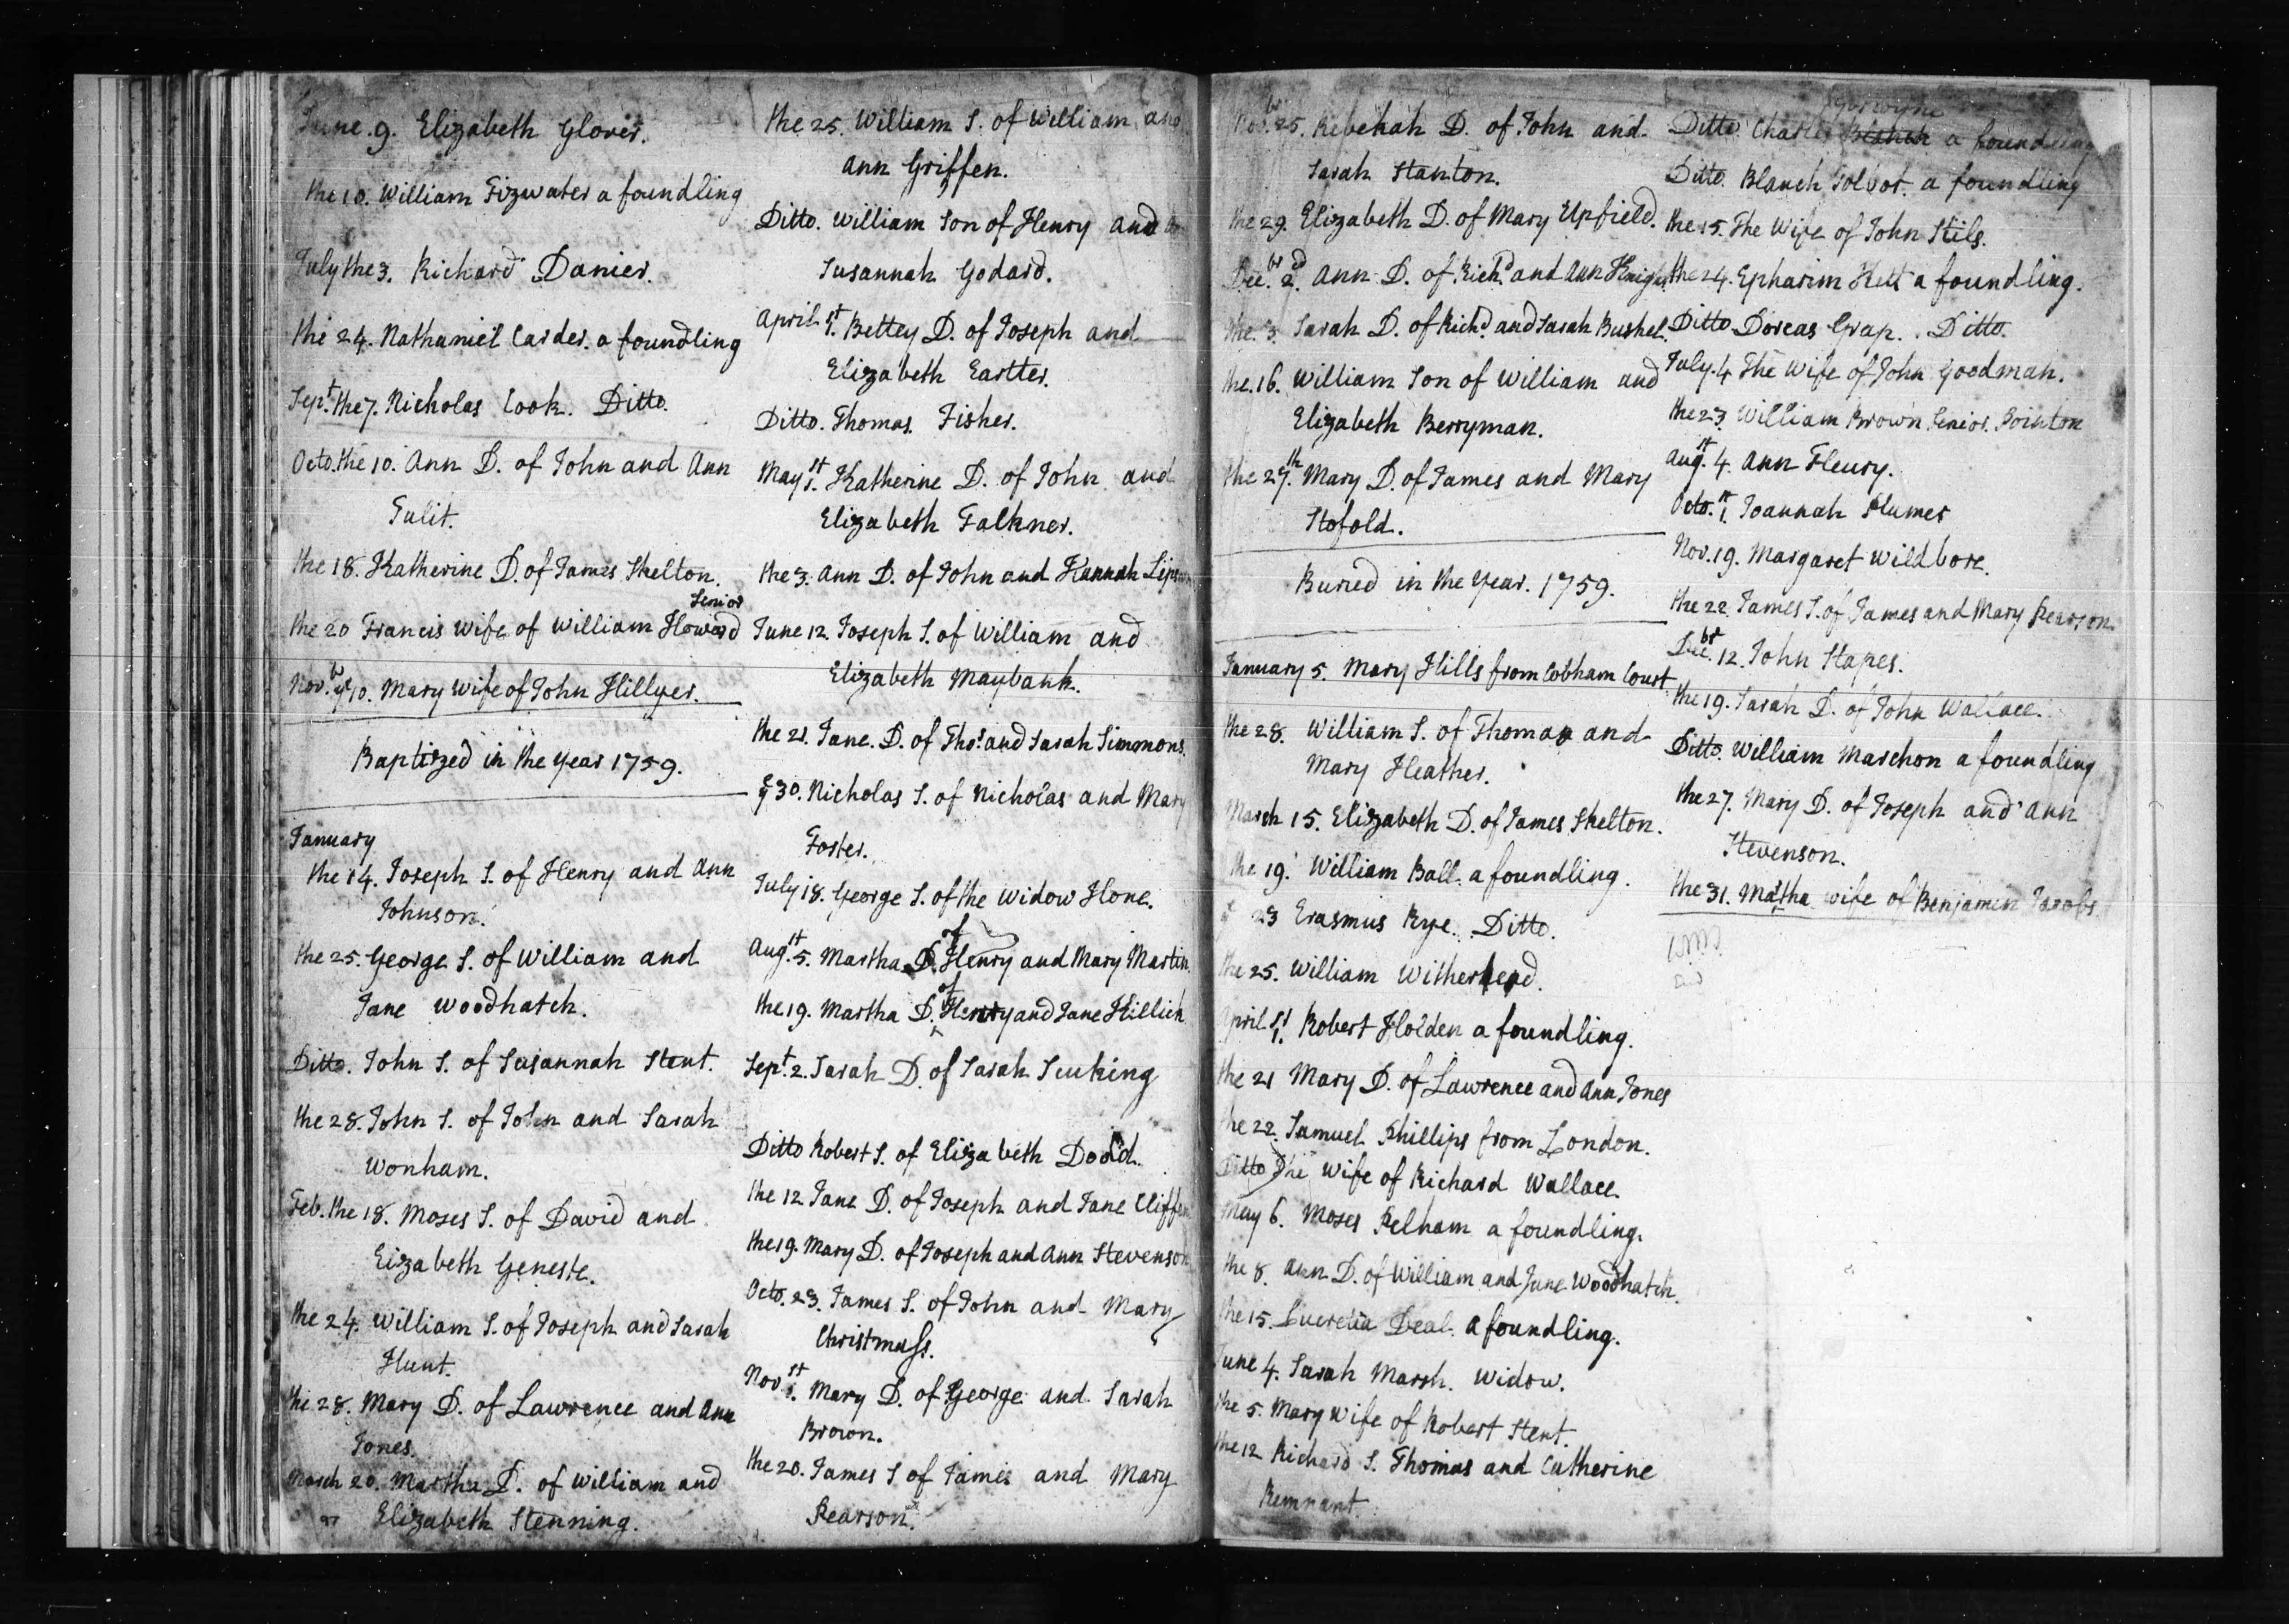 June. 9. Elizabeth Glover.
the 10. William Fizwater a foundling
July the 3. Richard Danier.
the 24. Nathaniel Carder. a foundling
Sept. the 7. Nicholas Cook. Ditto.
Octo. the 10. Ann D. of John and Ann
Tulit.
the 18. Katherine D. of James Skelton.
Senior
the 20 Francis Wife of William Howard
Nov.br ye 10. Mary Wife of John Hillyer.
Baptized in the Year 1759.
January
the 14. Joseph S. of Henry and Ann
Johnson.
the 25. George S. of William and
Jane Woodhatch.
Ditto. John S. of Susannah Stent.
the 28. John S. of John and Sarah
Wonham.
Feb. the 18. Moses S. of David and
Eizabeth Geneste.
the 24. William S. of Joseph and Sarah
Hunt.
the 28. Mary D. of Lawrence and Ann
Jones.
March 20. Martha D. of William and
Elizabeth Stenning.
the 25. William S. of William and
Ann Griffen.
Ditto. William Son of Henry and
Susannah Godard.
April 1st. Bettey D. of Joseph and
Elizabeth Eartter.
Ditto. Thomas. Fisher.
May 1st. Katherine D. of John and
Elizabeth Falkner.
the 3. Ann D. of John and Hannah
June 12. Joseph S. of William and
Elizabeth Maybank.
the 21. Jane. D. of Thos. and Sarah Simmons.
ye 30. Nicholas S. of Nicholas and Mary
Foster.
July 18. George S. of the Widow Hone.
Aug.st 5. Martha D. of Henry and Mary Martin.
the 19. Martha D. of Henry and Jane Hillich
Sept. 2. Sarah D. of Sarah Seuking
Ditto Robert S. of Elizabeth Dodd.
the 12 Jane D. of Joseph and Jane
the 19. Mary D. of Joseph and Ann Stevenson
Octo. 23. James S. of John and Mary
Christmass.
Nov 1st. Mary D. of George and Sarah
Brown.
the 20. James S of James and Mary
Pearson.
Nov.br 25. Rebekah D. of John and
Sarah Stanton.
the 29. Elizabeth D. of Mary Upfield.
Dec.br 2d. Ann D. of Richd. and Ann Knight
the 3. Sarah D. of Richd. and Sarah Bushel.
the 16. William Son of William and
Elizabeth Berryman.
the 27th. Mary D. of James and Mary
Hofold.
Buried in the Year. 1759.
January 5. Mary Hills from Cobham Court
the 28. William S. of Thomas and
Mary Heather.
March 15. Elizabeth D. of James Skelton.
the 19. William Ball. a foundling.
23 Erasmus Rye. Ditto.
the 25. William Witherherd.
April 1st. Robert Holden a foundling.
the 21 Mary D. of Lawrence and Ann Jones
the 22. Samuel Phillips from London.
Ditto The Wife of Richard Wallace.
May 6. Moses Pelham a foundling.
the 8. Ann D. of William and Jane Woodhatch.
the 15. Lucretia Deal. a foundling.
June 4. Sarah Marsh. Widow.
the 5. Mary Wife of Robert Stent.
the 12 Richard S. Thomas and Catherine
Remnant.
Ditto. Charles a foundling
Ditto. Blanch Tolbot. a foundling
the 15. The Wife of John Stils.
the 24. Epharim Kett a foundling.
Ditto Dorcas Grap. Ditto.
July. 4 The Wife of John Goodman.
the 23. William Brown Senior. Pointon
Aug.st 4. Ann Fleury.
Octo. 1st. Joannah Plumer
Nov. 19. Margaret Wildbore.
the 22 James S. of James and Mary Pearson.
Dec.br 12. John Stapes.
the 19. Sarah D. of John Wallace.
Ditto. William Marchon a foundling
the 27. Mary D. of Joseph and Ann
Stevenson.
the 31. Martha wife of Benjamen Jacobs.